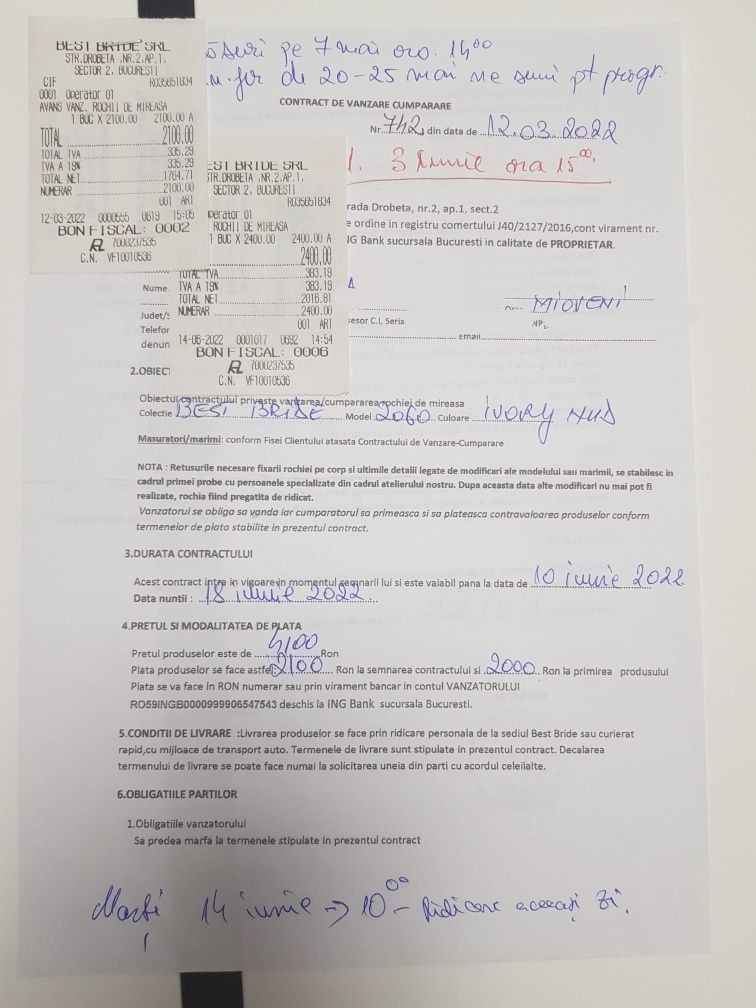 BEST BRIDE SRL
STR.DROBETA ,NR.2,AP.1,
SECTOR 2, BUCURESTI
CIF RO35651834
0001 Operator 01
AVANS VANZ. ROCHII DE MIREASA
1 BUC X 2100.00 2100.00 A
TOTAL 2100.00
TOTAL TVA 335.29
TVA A 19% 335.29
TOTAL NET 1764.71
NUMERAR 2100.00
001 ART
12-03-2022 0000555 0619 15:05
BON FISCAL: 0002
7000237535
C.N. VF10010536
EST BRIDE SRL
STR.DROBETA ,NR.2,AP.1,
SECTOR 2, BUCURESTI
RO35651834
perator 01
ROCHII DE MIREASA
1 BUC X 2400.00 2400.00 A
2400.00
TOTAL TVA 383.19
TVA A 19% 383.19
TOTAL NET 2016.81
NUMERAR 2400.00
001 ART
14-06-2022 0001017 0692 14:54
BON FISCAL: 0006
7000237535
C.N. VF10010536
pe 7 mai ora 14 00
de 20-25 mai ne suni pt progr.
CONTRACT DE VANZARE CUMPARARE
Nr. 742 din data de 12.03.2022
3 Iunie ora 15 00.
rada Drobeta, nr.2, ap.1, sect.2
e ordine in registru comertului J40/2127/2016,cont virament nr.
NG Bank sucursala Bucuresti in calitate de PROPRIETAR.
Nume
MIOVENI
Judet/S
esor C.I, Seria
Telefor
email
denun
2.OBIECT
Obiectul contractului priveste vanzarea/cumpararea rochiei de mireasa
Colectie BEST BRIDE Model 2060 Culoare IVORY NUD
Masuratori/marimi: conform Fisei Clientului atasata Contractului de Vanzare-Cumparare
NOTA : Retusurile necesare fixarii rochiei pe corp si ultimile detalii legate de modificari ale modelului sau marimii, se stabilesc in
cadrul primei probe cu persoanele specializate din cadrul atelierului nostru. Dupa aceasta data alte modificari nu mai pot fi
realizate, rochia fiind pregatita de ridicat.
Vanzatorul se obliga sa vanda iar cumparatorul sa primeasca si sa plateasca contravaloarea produselor conform
termenelor de plata stabilite in prezentul contract.
3.DURATA CONTRACTULUI
Acest contract intra in vigoare in momentul semnarii lui si este valabil pana la data de 10 iunie 2022
Data nuntii : 18 iunie 2022
4.PRETUL SI MODALITATEA DE PLATA
Pretul produselor este de 4100 Ron
Plata produselor se face astfel: 2100 Ron la semnarea contractului si 2000 Ron la primirea produsului
Plata se va face in RON numerar sau prin virament bancar in contul VANZATORULUI
RO59INGB0000999906547543 deschis la ING Bank sucursala Bucuresti.
5.CONDITII DE LIVRARE :Livrarea produselor se face prin ridicare personala de la sediul Best Bride sau curierat
rapid,cu mijloace de transport auto. Termenele de livrare sunt stipulate in prezentul contract. Decalarea
termenului de livrare se poate face numai la solicitarea uneia din parti cu acordul celeilalte.
6.OBLIGATIILE PARTILOR
1.Obligatiile vanzatorului
Sa predea marfa la termenele stipulate in prezentul contract
Marți 14 iunie -> 10 00 - Ridicare aceeași zi.